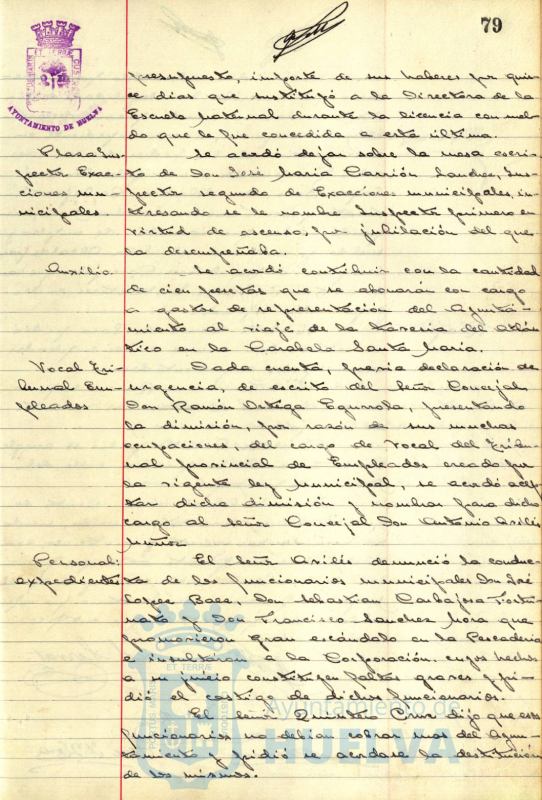 79
AYUNTAMIENTO DE HUELVA
presupuesto, importe de sus haberes por quin
ce dias que sustituyó a la Directora de la
Escuela Maternal durante la licencia con mo
do que le fue concedida a esta última.
Plaza Ins-
pector Exac-
ciones mu-
nicipales.
Se acordó dejar sobre la mesa escri-
to de Don José Maria Carrión Ins-
pector segundo de Exacciones municipales, in-
teresando se le nombre Inspector primero en
virtud de ascenso, por jubilación del que
la desempeñaba.
Auxilio
Se acordó contribuir con la cantidad
de cien pesetas que se abonarán con cargo
a gastos de representación del Ayunta-
miento al viaje de la travesia del Atlán
tico en la Carabela Santa Maria.
Vocal Tri-
bunal Em-
pleados
Dada cuenta, previa declaración de
urgencia, de escrito del Señor Concejal
Don Ramón Ortega Egurrola, presentando
la dimisión, por razón de sus muchas
ocupaciones, del cargo de Vocal del Tribu-
nal provincial de Empleados creado por
la vigente ley Municipal, se acordó acep
tar dicha dimisión y nombrar para dicho
cargo al Señor Concejal Don Antonio Avilés
Muñoz
Personal:
expedientes
El Señor Avilés denunció la conduc
ta de los funcionarios municipales Don José
Lopez Baez, Don Sebastian Carbajosa Fortu-
nato y Don Francisco Sanchez Mora que
promovieron gran escándalo en la Pescaderia
e insultaron a la Corporación, cuyos hechos
a su juicio constituyen faltas graves y pi-
dió el castigo de dichos funcionarios.
El Señor Quintero Cruz dijo que esos
funcionarios no debian cobrar mas del Ayun-
tamiento y pidió se acordase la destitución
de los mismos.
Ayuntamiento de
HUELVA